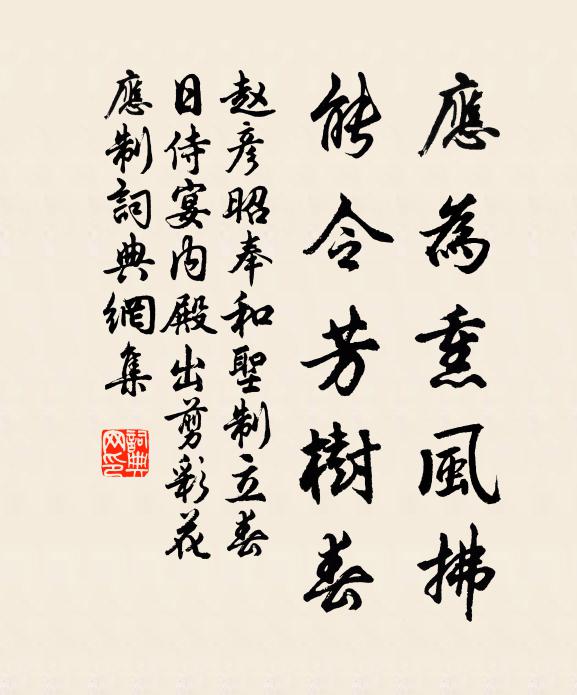 應為熏風拂
能令芳樹春
赵彦昭奉和聖制立春
日侍宴内殿出剪彩花
應制詞典網集
詞典網印